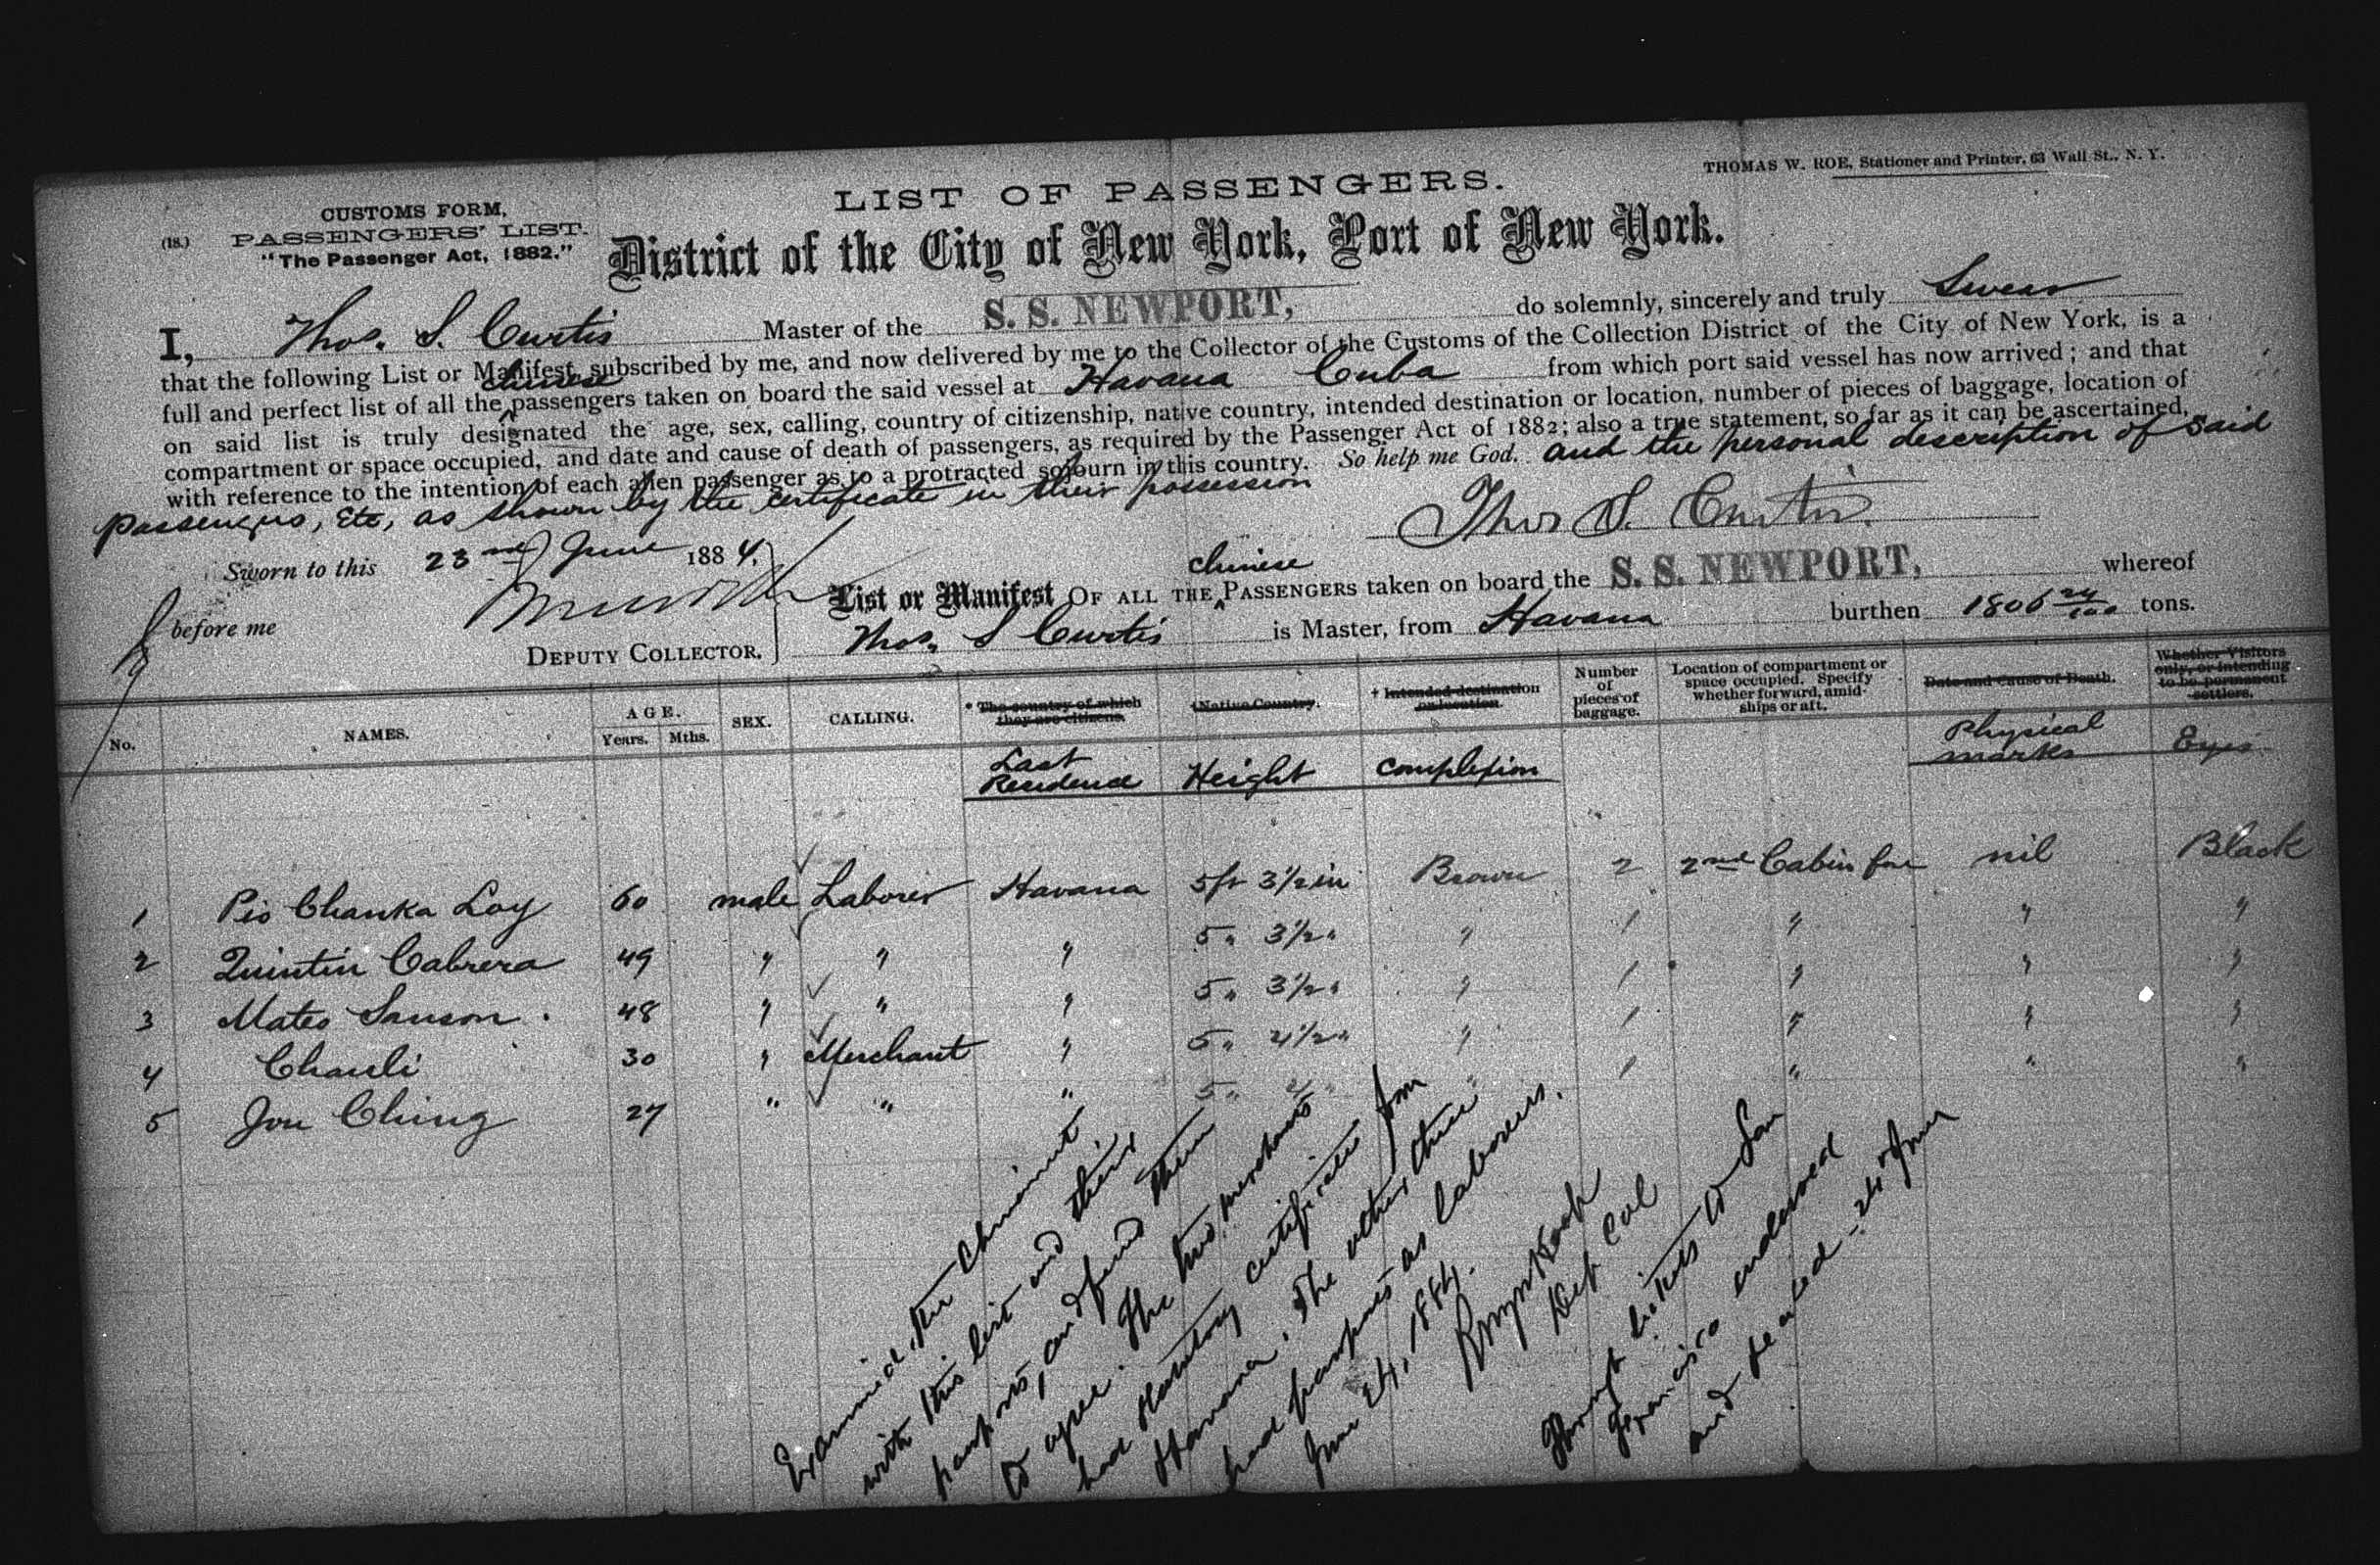 THOMAS W. ROE, Stationer and Printer, 63 Wall St., N. Y.
LIST OF PASSENGERS.
CUSTOMS FORM,
(18.) PASSENGERS' LIST.
"The Passenger Act, 1882."
District of the City of New York, Port of New York.
I, Thos. S. Curtis Master of the S. S. NEWPORT, do solemnly, sincerely and truly Swear
that the following List or Manifest, subscribed by me, and now delivered by me to the Collector of the Customs of the Collection District of the City of New York, is a
full and perfect list of all the chinese passengers taken on board the said vessel at Havana Cuba from which port said vessel has now arrived; and that
on said list is truly designated the age, sex, calling, country of citizenship, native country, intended destination or location, number of pieces of baggage, location of
compartment or space occupied, and date and cause of death of passengers, as required by the Passenger Act of 1882; also a true statement, so far as it can be ascertained,
with reference to the intention of each alien passenger as to a protracted sojourn in this country. So help me God. and the personal description of said
passengers, etc, as shown by the certificate in their possession
Thos S. Curtis.
Sworn to this 23rd June 1884.
before me
DEPUTY COLLECTOR.
List or Manifest OF ALL THE chinese PASSENGERS taken on board the S. S. NEWPORT, whereof
Thos. S Curtis is Master, from Havana burthen 1806 24/100 tons.
No. NAMES. AGE. Years. Mths. SEX. CALLING. * The country of which they are citizens. †Native Country. † Intended destination or location. Number of pieces of baggage. Location of compartment or space occupied. Specify whether forward, amidships or aft. Date and Cause of Death. Whether Visitors only, or intending to be permanent settlers.
Last Residence Height Complexion Physical marks Eyes
1 Pio Chanka Loy 60 male Laborer Havana 5ft 3½in Brown 2 2nd Cabin for nil Black
2 Quintin Cabrera 49 " " " 5 " 3½ " " 1 " " "
3 Mateo Sanson 48 " " " 5 " 3½ " " 1 " " "
4 Chauli 30 " Merchant " 5 " 4½ " " 1 " " "
5 Jou Ching 27 " " " 5 " " " 1 " " "
Examined the Chinamen
with this list and their
passports, and find them
to agree. The two merchants
had certificates from
Havana, the other three
had passports as laborers.
June 24, 1884.
Dep Col
Through tickets to San
Francisco endorsed
and 24 June